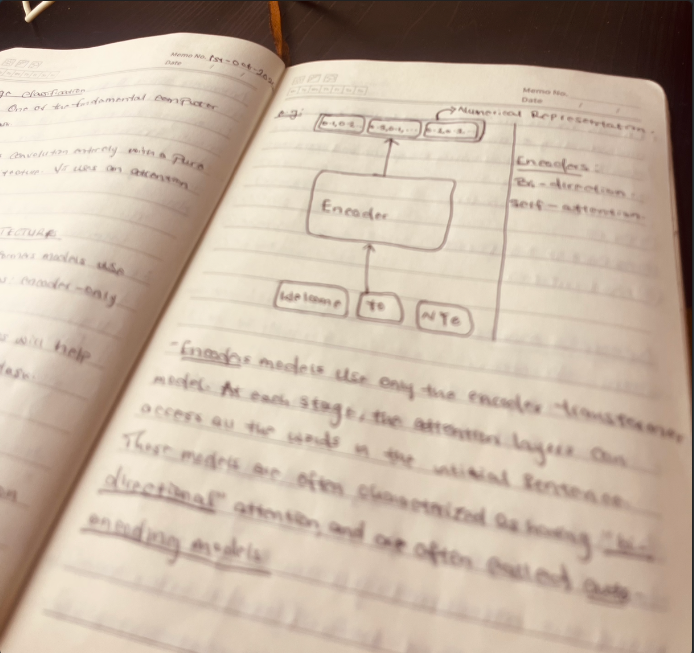 Memo No. 1st-Oct-202
Date / /
ge classification
One of the fundamental computer
convolution entirely with a Pure
an attention
TECTURE
models use
encoder-only
will help
on
Memo No.
Date / /
e.g:
Numerical Representation.
Encoder
Welcome
to
NYC
Encoders:
Bi-direction.
Self-attention.
-Encoder models use only the encoder transformer
model. At each stage, the attention layers can
access all the words in the initial sentence.
These models are often characterized as having "bi-
directional" attention, and are often called auto-
encoding models.